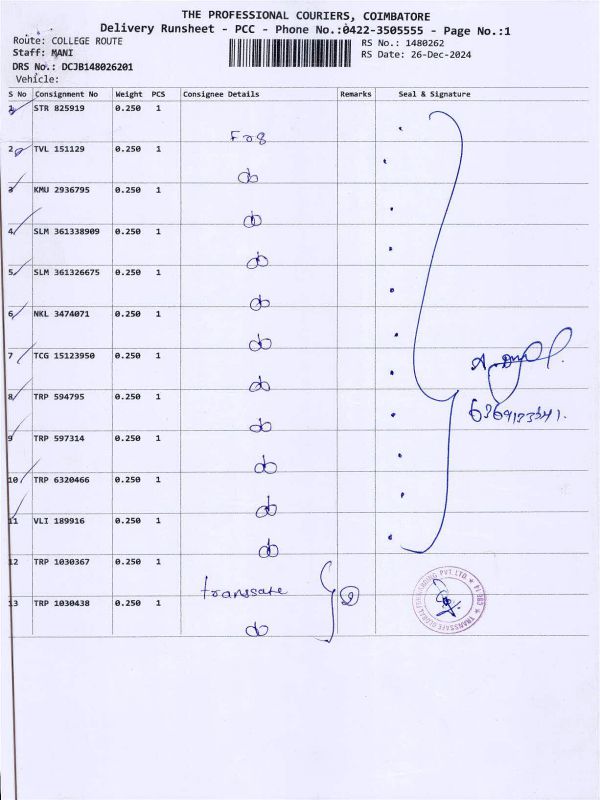 THE PROFESSIONAL COURIERS, COIMBATORE
Delivery Runsheet - PCC - Phone No.:0422-3505555 - Page No.:1
Route: COLLEGE ROUTE
RS No.: 1480262
Staff: MANI
RS Date: 26-Dec-2024
DRS No.: DCJB148026201
Vehicle:
S No Consignment No Weight PCS Consignee Details Remarks Seal & Signature
1 STR 825919 0.250 1
2 TVL 151129 0.250 1
do
3 KMU 2936795 0.250 1
do
4 SLM 361338909 0.250 1
do
5 SLM 361326675 0.250 1
do
6 NKL 3474071 0.250 1
do
7 TCG 15123950 0.250 1
do
8 TRP 594795 0.250 1
do
9 TRP 597314 0.250 1
do
10 TRP 6320466 0.250 1
do
11 VLI 189916 0.250 1
do
12 TRP 1030367 0.250 1
transsafe
2
13 TRP 1030438 0.250 1
do